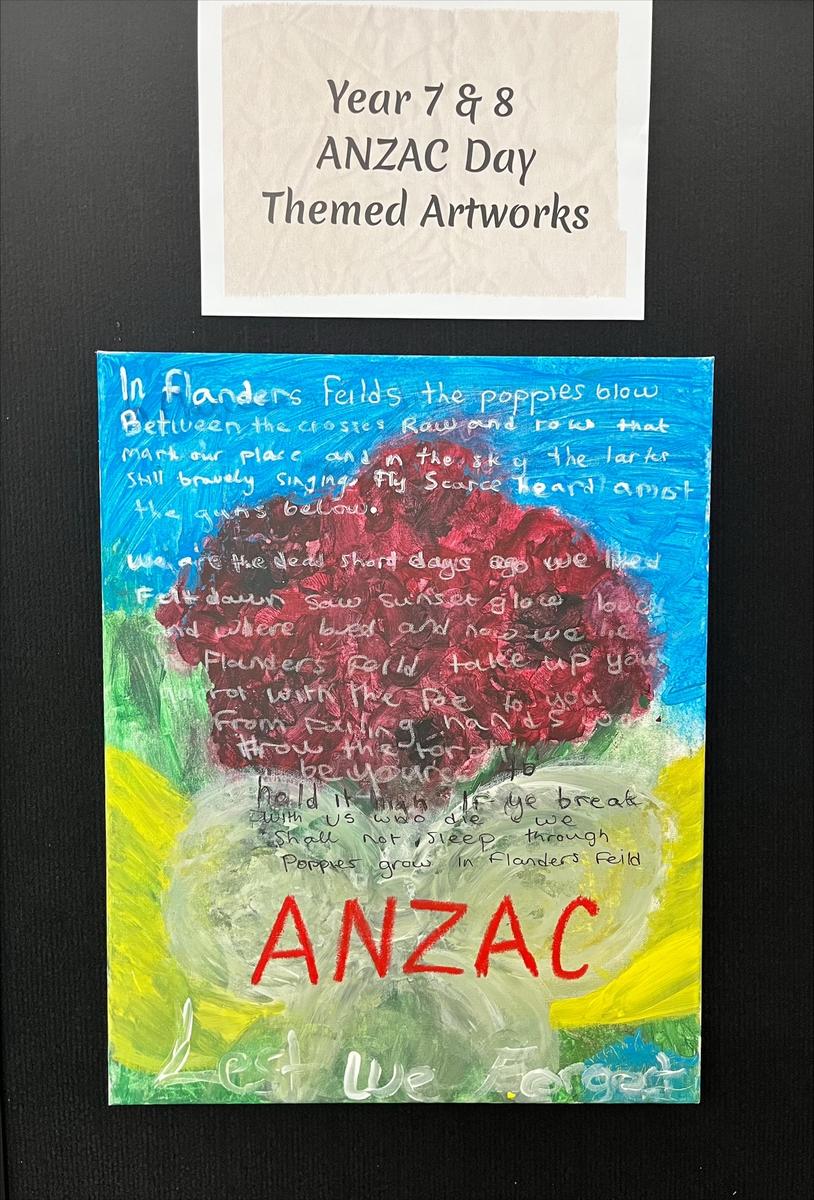 Year 7 & 8
ANZAC Day
Themed Artworks
In Flanders Feilds the poppies blow
Between the crosses Raw and row that
mark our place and in the sky the larks
Still bravely singing. Fly Scarce heard amst
the guns below.
We are the dead short days ago we lived
Felt dawn saw sunset glow
and where and now we lie
Flanders Feild take up you
with the Foe To you
From Failing hands we
throw the torch
be yours to
hold it high If ye break
with us who die we
Shall not sleep through
Poppies grow in Flanders Feild
ANZAC
Lest We Forget